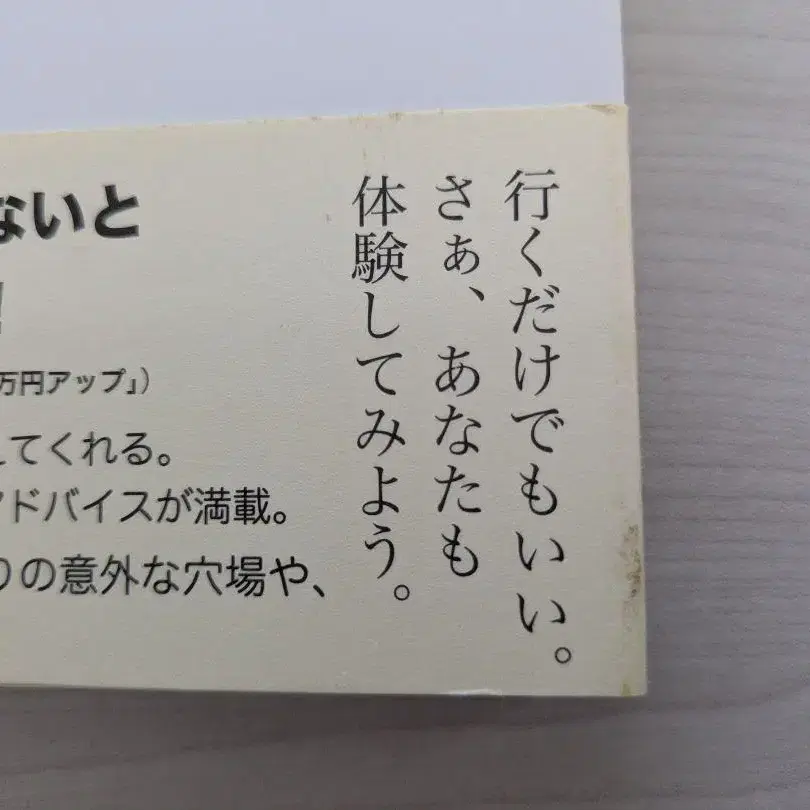 行くだけでもいい。
さぁ、あなたも
体験してみよう。
ないと
!
万円アップ」)
てくれる。
アドバイスが満載。
の意外な穴場や、